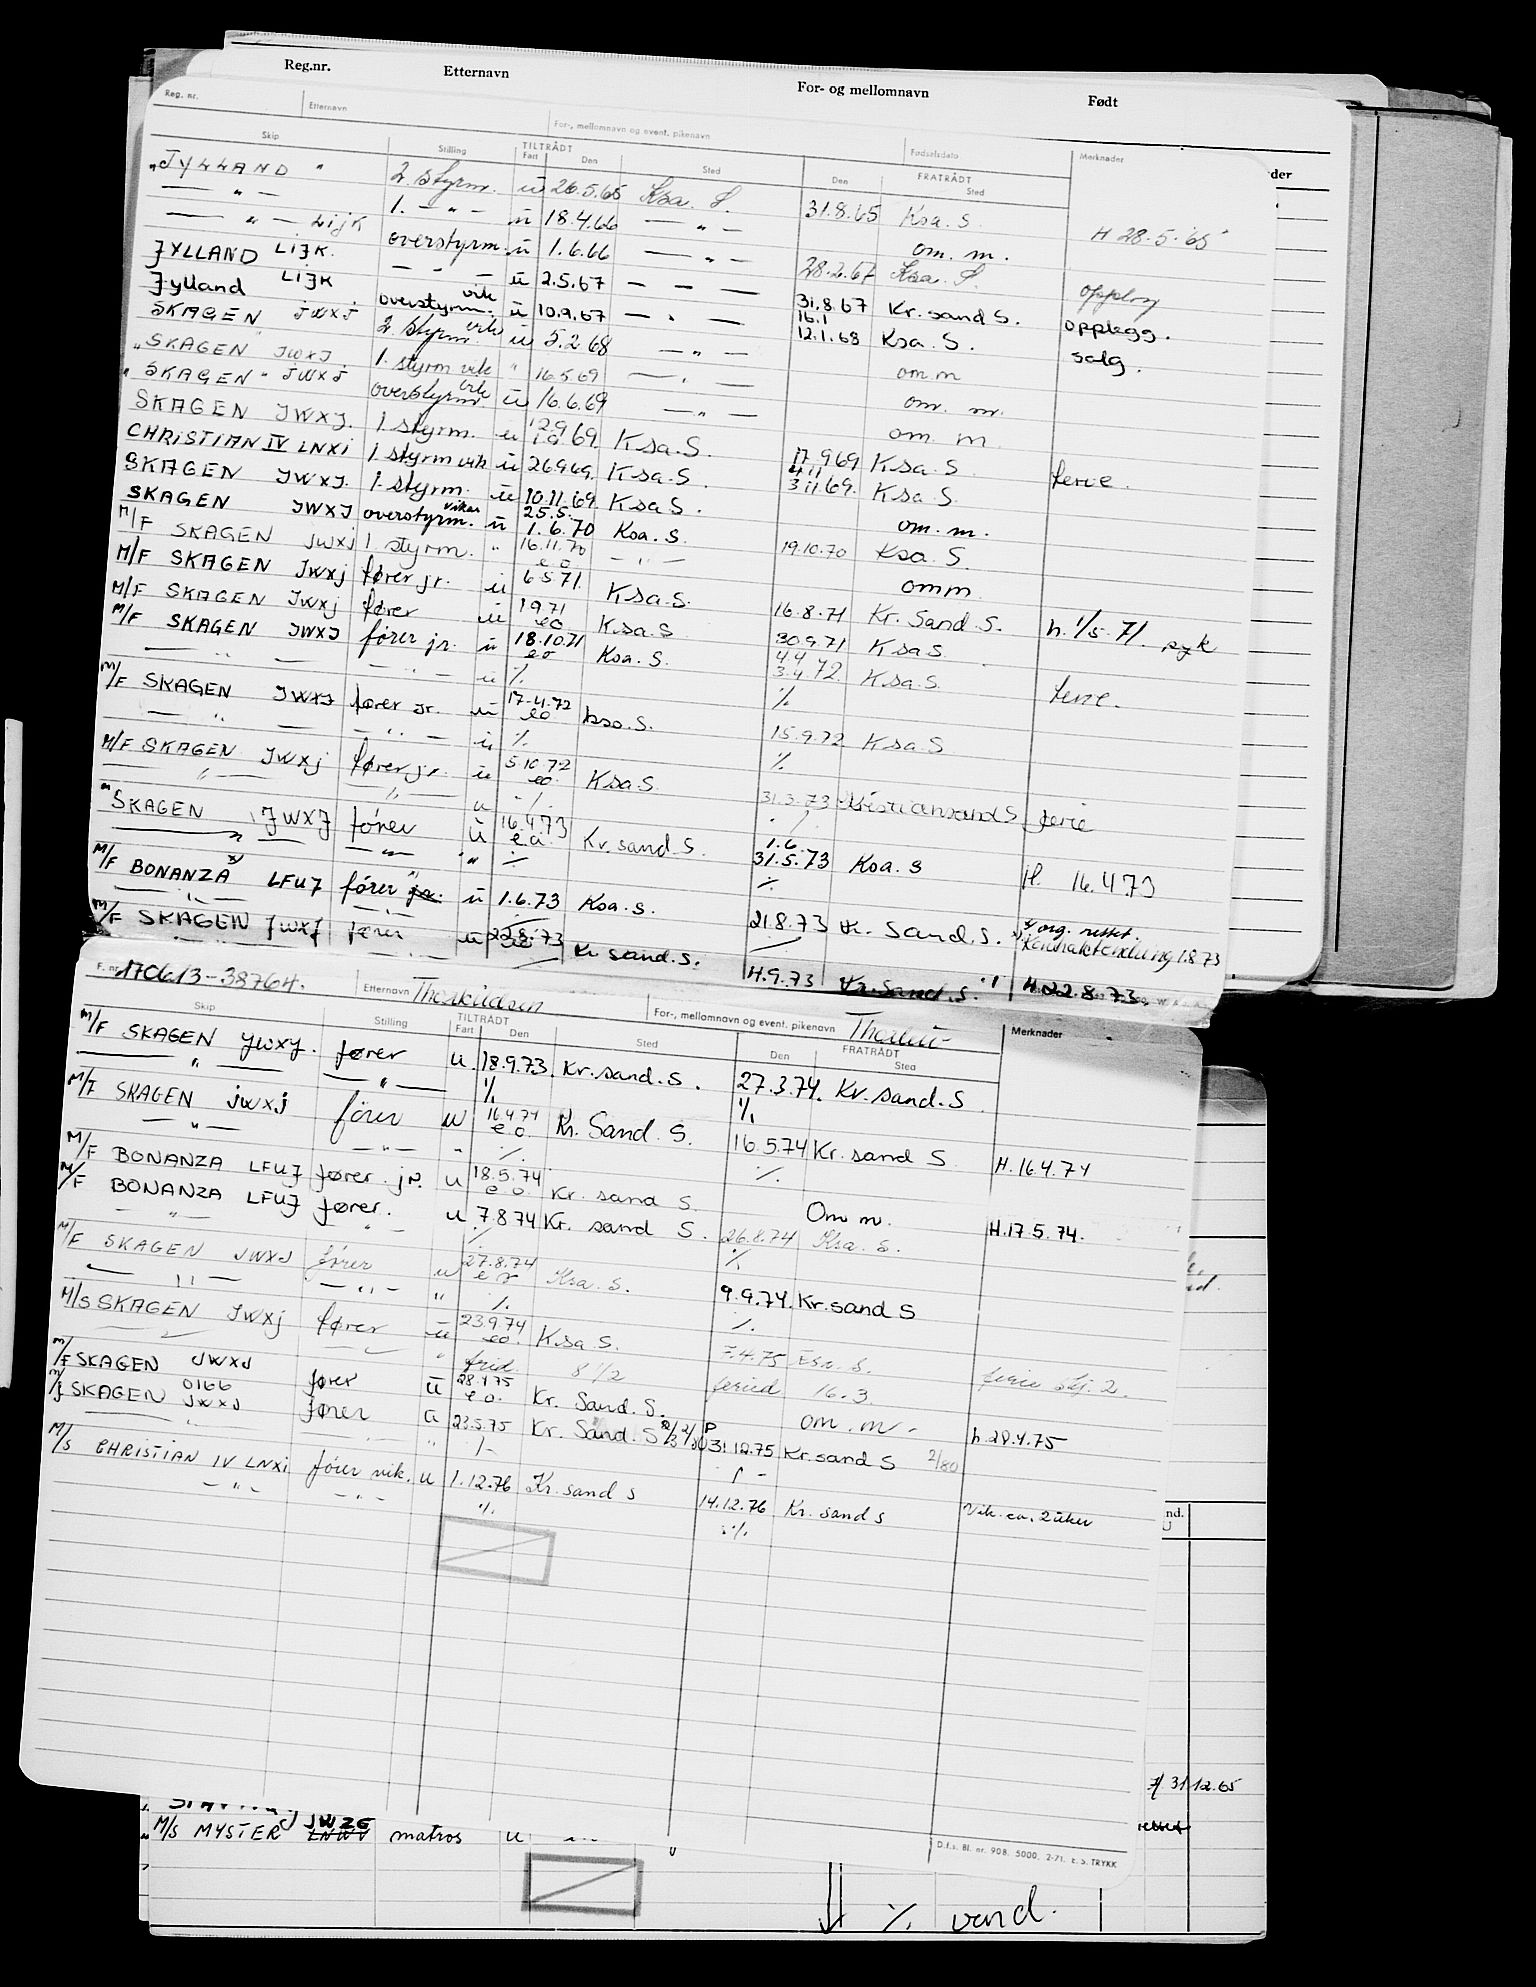 Reg.nr. Etternavn For- og mellomnavn Født
Reg. nr. Etternavn For-, mellomnavn og event. pikenavn Fødselsdato Merknader
Skip Stilling TILTRÅDT Fart Den Sted FRATRÅDT Den Sted
"JYLLAND" 2. styrm. u 26.5.65 Ksa. S. 31.8.65 Ksa. S. H 28.5.65
— " — 1. — " — u 18.4.66 — " — om. m.
— " — LIJK overstyrm. u 1.6.66 — " — 28.2.67 Ksa. S. opplag
JYLLAND LIJK. — " — u 2.5.67 — " — 31.8.67 Kr. sand S. opplegg.
Jylland LIJK overstyrm. vik u 10.9.67 — " — 16.1 12.1.68 Ksa. S. salg.
SKAGEN JWXJ 2. styrm. vik u 5.2.68 — " — om m
"SKAGEN JWXJ 1. styrm vik " 16.5.69 — " — om. m.
"SKAGEN" JWXJ overstyrm vik u 16.6.69 — " — om m
SKAGEN JWXJ. 1 styrm. u 12.9 69. Ksa. S. 17.9.69 Ksa. S ferie.
CHRISTIAN IV LNXI 1 styrm vik u 26969. Ksa. S. 4.11 3.11.69. Ksa. S.
SKAGEN JWXJ. 1. styrm. u 10.11.69 Ksa. S. om. m.
SKAGEN JWXJ overstyrm. vikar u 25.5. 1.6.70 Ksa. S. 19.10.70 Ksa. S.
M/F SKAGEN JWXJ 1 styrm. " 16.11.70 eo — " — omm
M/F SKAGEN JWXJ fører jr. u 6571 Ksa. S. 16.8.71 Kr. Sand. S. h. 1/5. 71. syk
M/F SKAGEN JWXJ fører u 1971 eo Ksa. S 30.9.71 Ksa S.
M/F SKAGEN JWXJ fører jr. u 18.10.71 eo Ksa. S. 4.4 3.4.72 Ksa. S. ferie.
— " — — " — u ./. ./.
M/F SKAGEN JWXJ fører jr. u 17.4.72 eo Ksa. S. 15.9.72 Ksa. S
— " — — " — u ./. ./.
M/F SKAGEN JWXJ fører jr. u 5.10.72 eo. Ksa S. 31.3.73 Kristiansand S ferie
— " — — " — u ./. ./.
"SKAGEN JWXJ fører u 16.4.73 e.o. Kr. sand S. 1.6. 31.5.73 Ksa. S H. 16.4.73
— " — — " — " ./. ./.
M/F BONANZA x) LFUJ fører jr. u 1.6.73 Ksa. S. 21.8.73 Kr. Sand. S. x) org. rettet.
M/F SKAGEN JWXJ fører u 22.8.73 Kr sand. S. H.9.73 Kr. Sand. S. H. 22.8.73.
F. nr. 170613-38764. Etternavn Thorkildsen For-, mellomnavn og event. pikenavn
Skip Stilling TILTRÅDT Fart Den Sted FRATRÅDT Den Sted Merknader
M/F SKAGEN JWXJ. fører u 18.9.73. Kr. sand. S. 27.3.74. Kr. sand. S
— " — — " — ./. ./.
M/F SKAGEN JWXJ fører u 16.4.74 e.o. Kr. Sand. S. 16.5.74 Kr. sand S. H. 16.4.74
— " — — " — " ./. ./.
M/F BONANZA LFUJ fører. jr. u 18.5.74 e.o. Kr. sand S. Om m. H. 17.5.74.
M/F BONANZA LFUJ fører. u 7.8.74 Kr. sand S. 26.8.74 Ksa. S.
— " — — " — ./. ./.
M/F SKAGEN JWXJ fører u 27.8.74 eo Ksa. S. 9.9.74. Kr. sand S
— " — — " — " ./. ./.
M/S SKAGEN JWXJ fører u 23974 eo. Ksa S. 7.4.75 Ksa. S. ferie
" frid 8 1/2 feried 16.3
M/F SKAGEN JWXJ fører u 28.4.75 e.o. Kr. Sand. S. om. m. h. 28.4.75
M/F SKAGEN 0166 JWXJ fører u 23.5.75 Kr. Sand. S 31.12.75 Kr. sand S 2/80
— " — — " — " ./. ./.
M/S CHRISTIAN IV LNXI fører vik. u 1.12.76 Kr. sand S 14.12.76 Kr. sand S Vik. ca. 2 uker
— " — — " — ./. ./.
nd.
31.12.65
M/S MYSTER JWZG LNWV matros u
D.f.s. Bl. nr. 908. 5000. 2-71. E. S. TRYKK
./. vend.